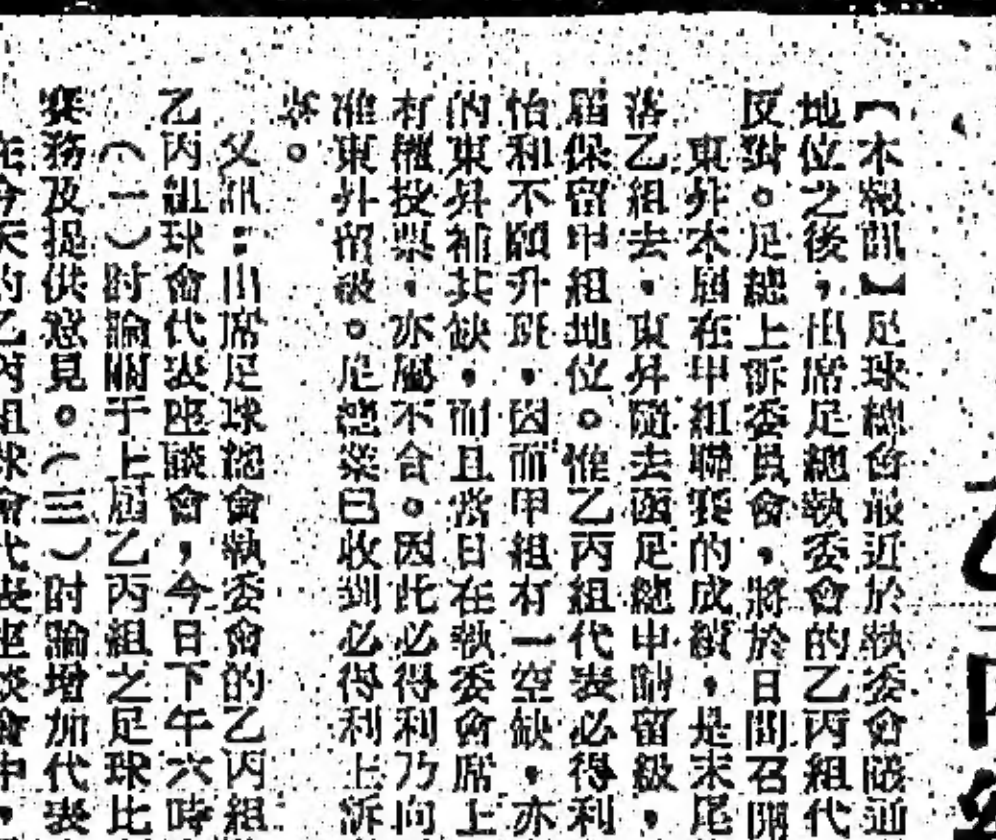 【本報訊】足球總會最近於執委會議通
地位之後，出席足總執委會的乙丙組代
反對。足總上訴委員會，將於日間召開
東昇本屆在甲組聯賽的成績，是末尾
落乙組去，東昇隨去函足總申請留級，
屆保留甲組地位。惟乙丙組代表必得利
怡和不願升班，因而甲組有一空缺，亦
的東昇補其缺，而且當日在執委會席上
有權投票，亦屬不合。因此必得利乃向
准東昇留級。足總業已收到必得利上訴
又訊：出席足球總會執委會的乙丙組
乙丙組球會代表座談會，今日下午六時
（一）討論關于上屆乙丙組之足球比
賽務及提供意見。（三）討論增加代表
在今天的乙丙組球會代表座談會中，